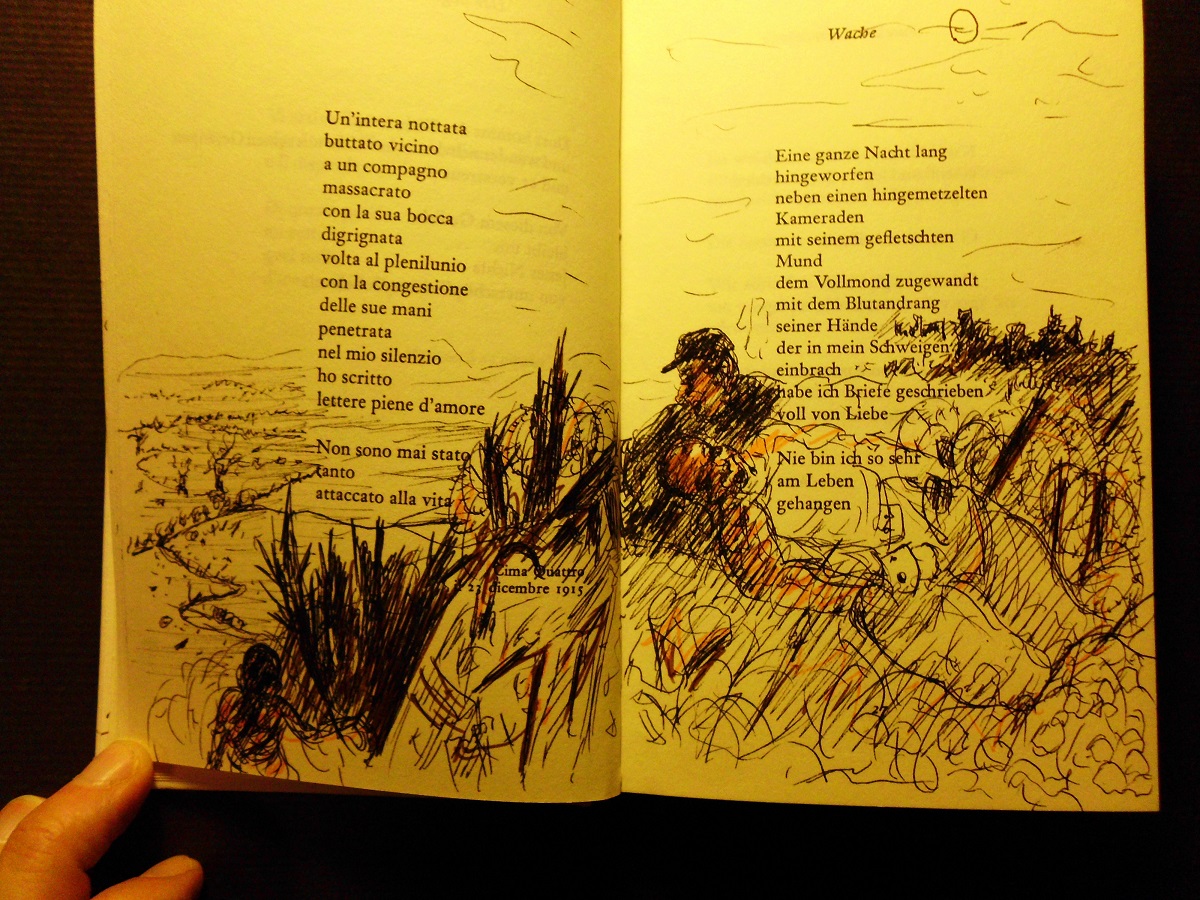 Un'intera nottata
buttato vicino
a un compagno
massacrato
con la sua bocca
digrignata
volta al plenilunio
con la congestione
delle sue mani
penetrata
nel mio silenzio
ho scritto
lettere piene d'amore
Non sono mai stato
tanto
attaccato alla vita
Cima Quattro
il 23 dicembre 1915
Wache
Eine ganze Nacht lang
hingeworfen
neben einen hingemetzelten
Kameraden
mit seinem gefletschten
Mund
dem Vollmond zugewandt
mit dem Blutandrang
seiner Hände
der in mein Schweigen
einbrach
habe ich Briefe geschrieben
voll von Liebe
Nie bin ich so sehr
am Leben
gehangen
27